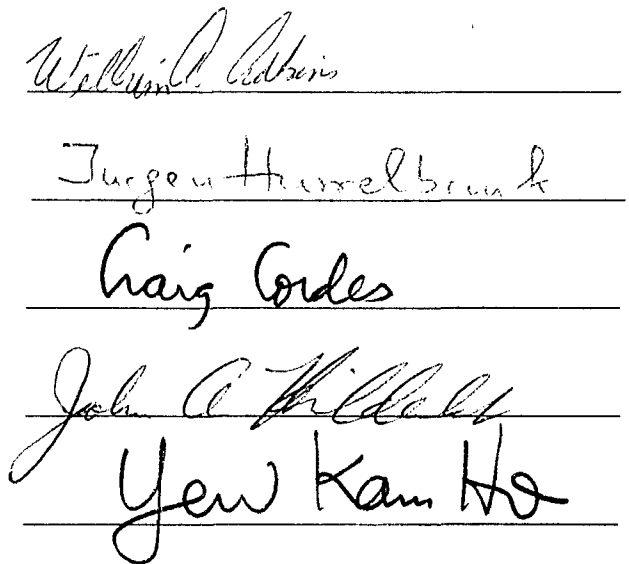 William A. Adkins
Jurgen Hurrelbrink
Craig Cordes
John A Hildebrant
Yew Kam Ho